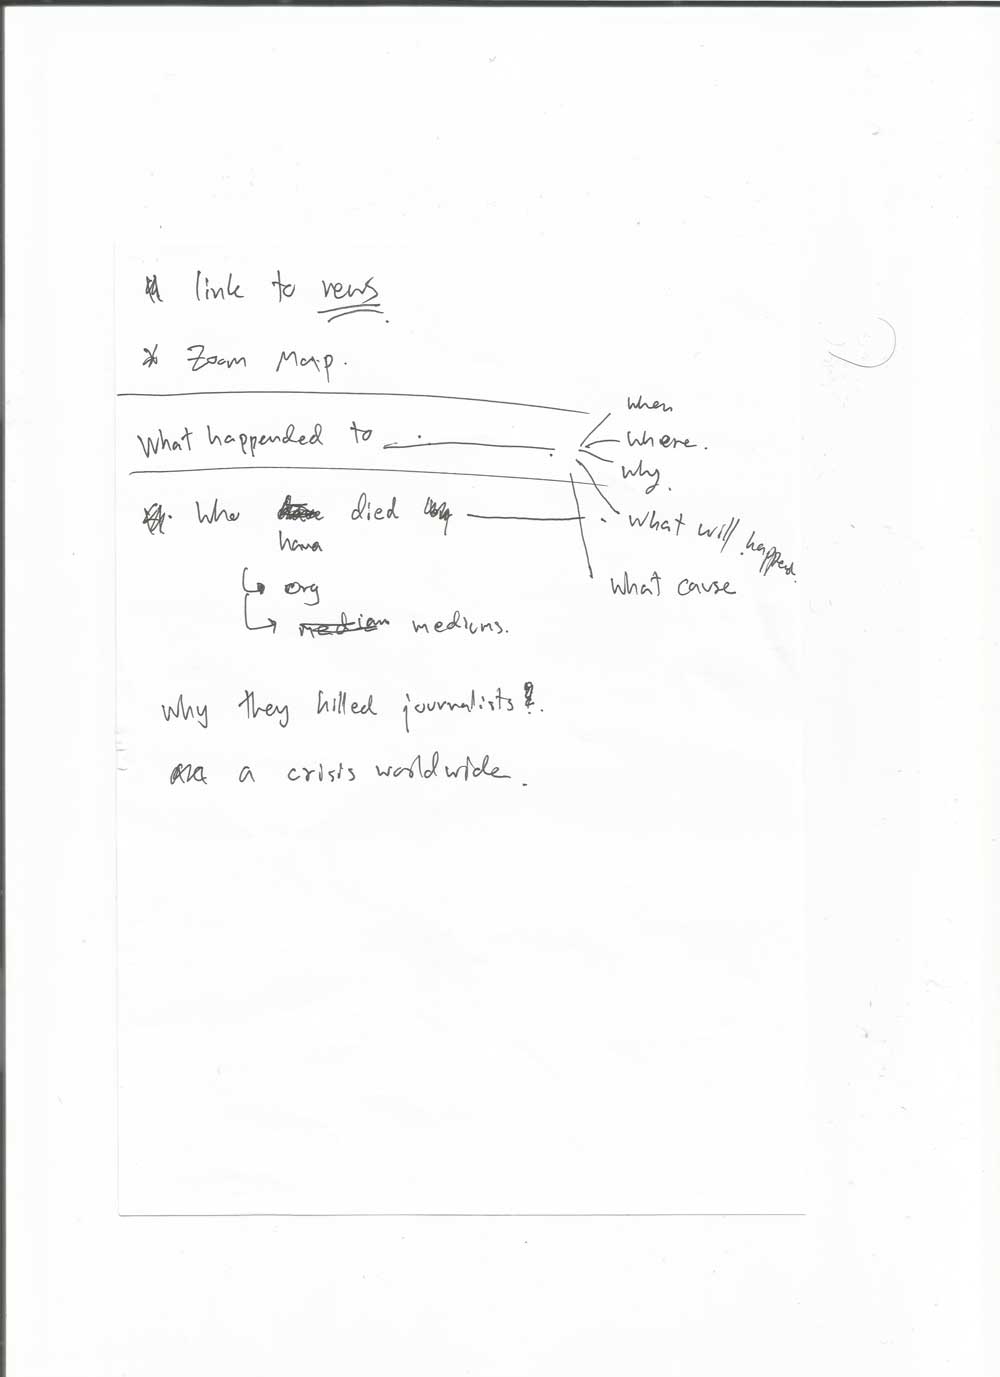 * link to news.
* Zoom Map.
What happended to ________.
when
where.
why.
what will happend.
what cause
* who died ________.
hava
↳ org
↳ mediums.
why they killed journalists?.
a crisis worldwide.